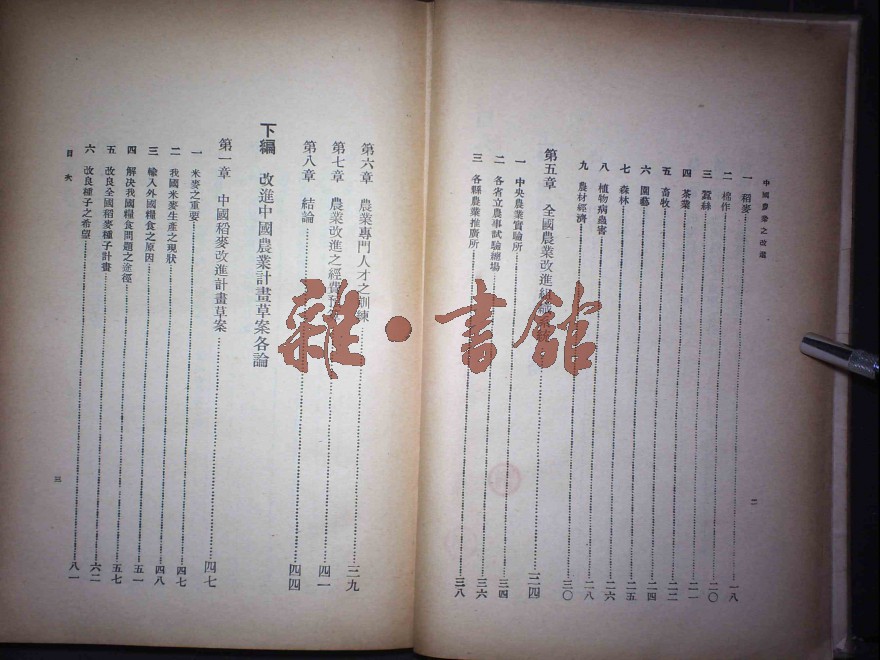 中國農業之改進
一 稻麥……一八
二 棉作……二〇
三 蠶絲……二一
四 茶業……二二
五 畜牧……二四
六 園藝……二五
七 森林……二六
八 植物病蟲害……二八
九 農村經濟……三〇
第五章 全國農業改進組織系統……三四
一 中央農業實驗所……三四
二 各省立農事試驗總場……三六
三 各縣農業推廣所……三八
二
第六章 農業專門人才之訓練……三九
第七章 農業改進之經費……四一
第八章 結論……四四
下編 改進中國農業計畫草案各論
第一章 中國稻麥改進計畫草案……四七
一 米麥之重要……四七
二 我國米麥生產之現狀……四八
三 輸入外國糧食之原因……五一
四 解決我國糧食問題之途徑……五七
五 改良全國稻麥種子計畫……六二
六 改良種子之希望……八一
目次
三
雜·書館